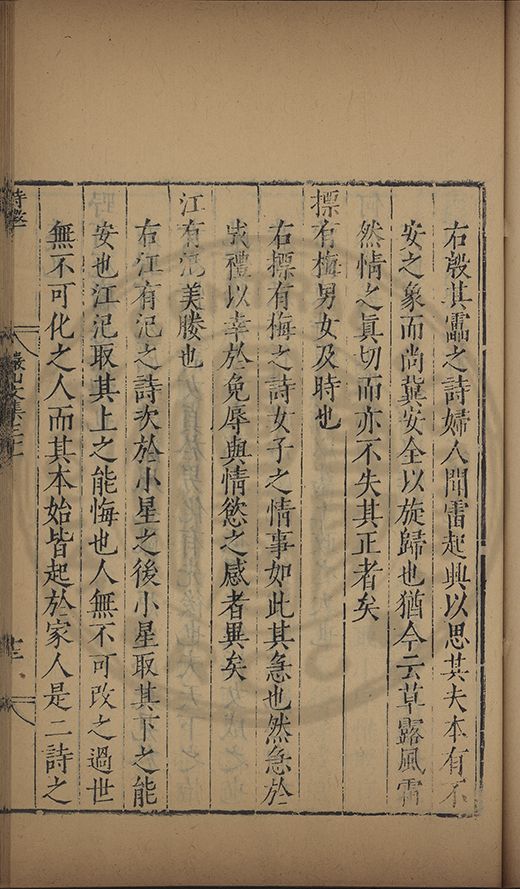 右殷其靁之詩婦人聞雷起興以思其夫本有不
安之象而尚冀安全以旋歸也猶今云草露風霜
然情之眞切而亦不失其正者矣
摽有梅男女及時也
右摽有梅之詩女子之情事如此其急也然急於
成禮以幸於免辱與情慾之感者異矣
江有汜美媵也
右江有汜之詩次於小星之後小星取其下之能
安也江汜取其上之能悔也人無不可改之過世
無不可化之人而其本始皆起於家人是二詩之